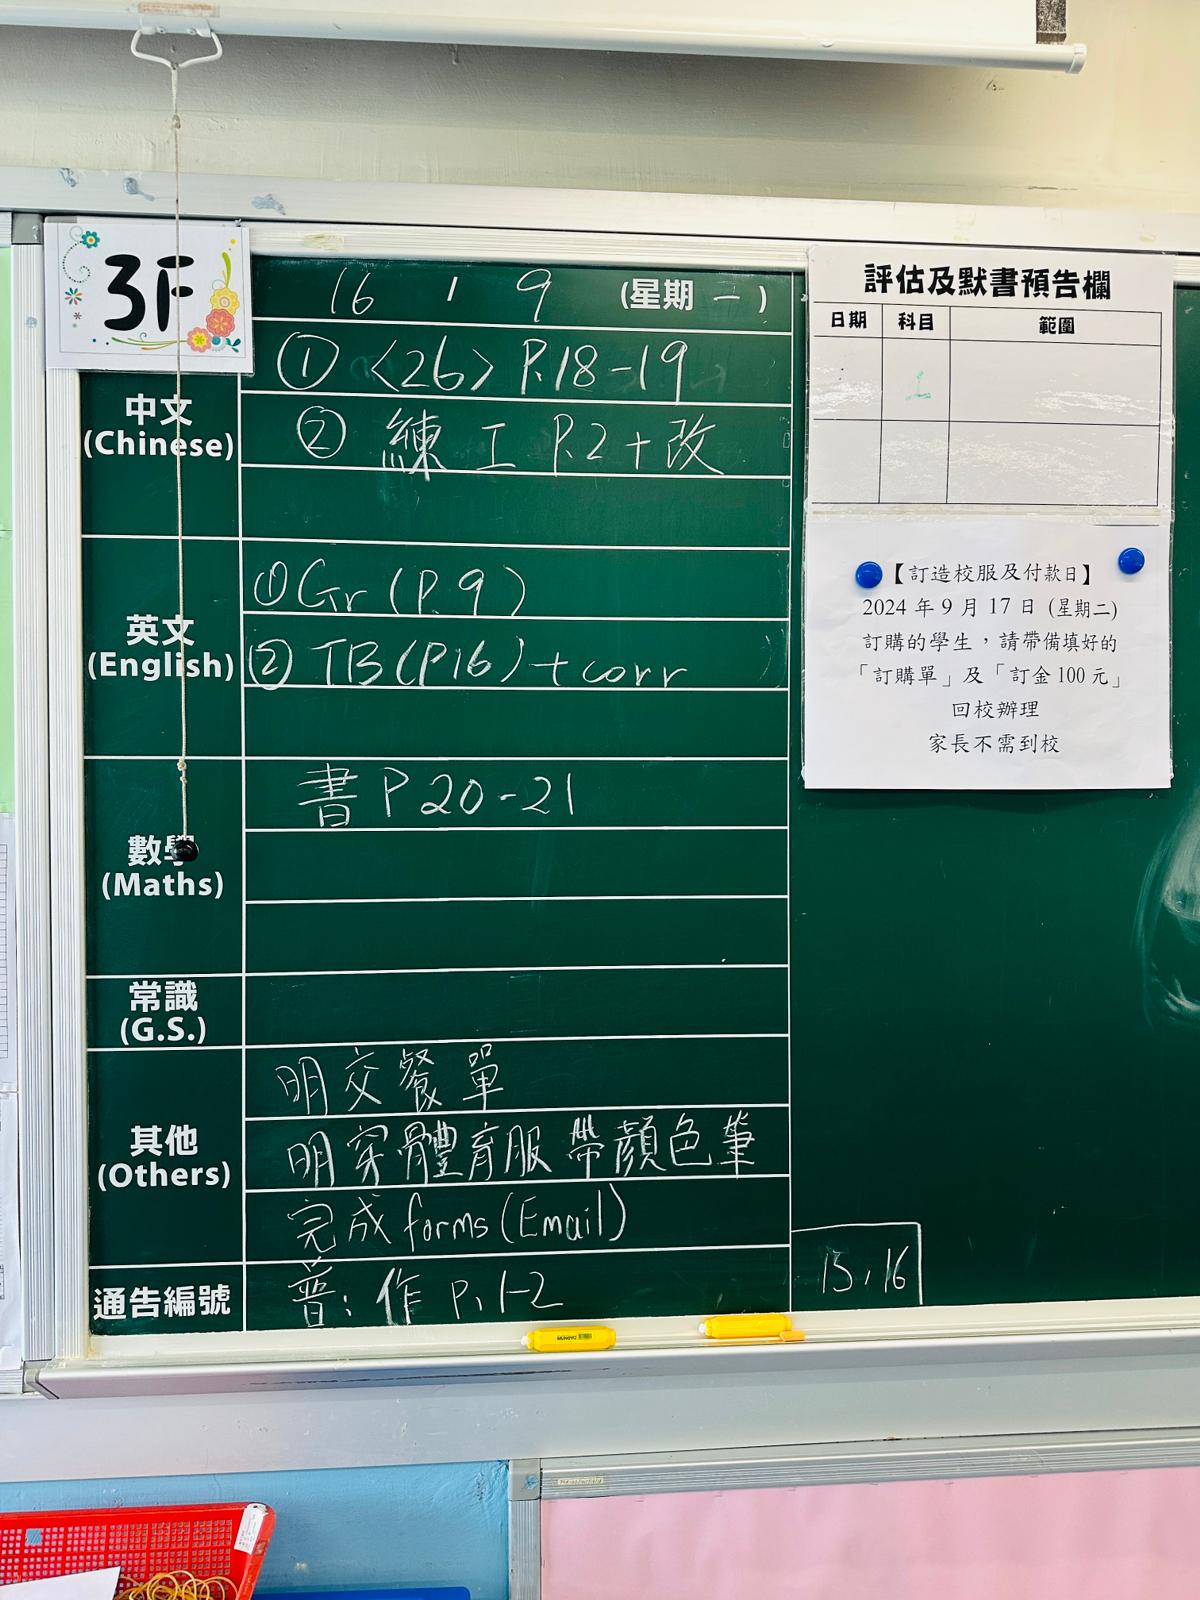 3F
16 / 9 (星期 一 )
中文
(Chinese)
① <26> P.18-19
② 練 工 P.2 + 改
英文
(English)
① Gr (P.9)
② TB (P16) + corr
數學
(Maths)
書 P 20-21
常識
(G.S.)
其他
(Others)
明交餐單
明穿體育服 帶顏色筆
完成 forms (Email)
通告編號
普: 作 P.1-2
15, 16
評估及默書預告欄
日期 科目 範圍
【訂造校服及付款日】
2024 年 9 月 17 日 (星期二)
訂購的學生，請帶備填好的
「訂購單」及「訂金 100 元」
回校辦理
家長不需到校
MUNGYO